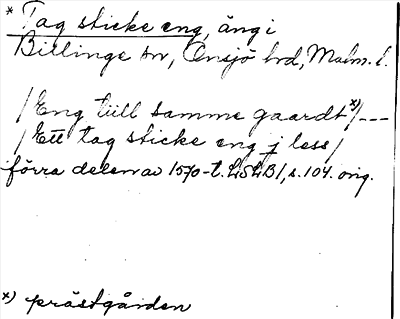 * Tag sticke eng, äng i
Billinge sn, Onsjö hd, Malm. l.
/Eng tiill samme gaardt x)/---
/Ett tag sticke eng j less/
förra delen av 1570-t. LSLB1, s. 104. orig.
x) prästgården